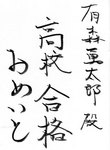 有森重太郎 殿
高校 合格
おめいと